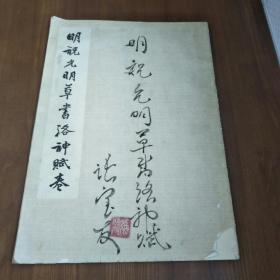 明祝允明草書洛神賦卷
明祝允明草書洛神賦